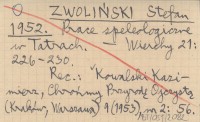 ZWOLIŃSKI Stefan
1952. Prace speleologiczne
w Tatrach. Wierchy 21:
226-230.
Rec.: Kowalski Kazi-
mierz, Chrońmy Przyrodę Ojczystą
(Kraków, Warszawa) 9 (1953), nr 2: 56.